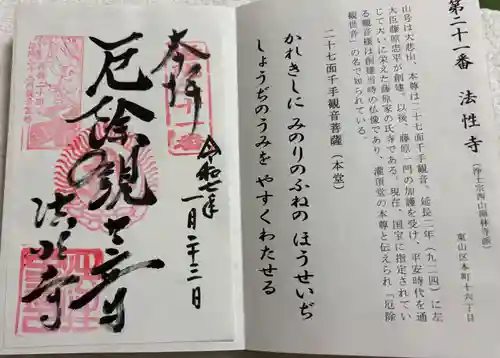 第二十一番　法性寺
（浄土宗西山禅林寺派）
東山区本町十六丁目
山号は大悲山、本尊は二十七面千手観音。延長二年（九二四）に左
大臣藤原忠平が創建。以後、藤原一門の加護を受け、平安時代を通
じて大いに栄えた藤原家の氏寺である。現在、国宝に指定されてい
る観音様は創建当時の仏像であり、灌頂堂の本尊と伝えられ「厄除
観世音」の名で知られている。
二十七面千手観音菩薩（本堂）
かれきしに みのりのふねの ほうせいぢ
しょうぢのうみを やすくわたせる
奉拝
令和七年
一月二十二日
厄除観世音
法性寺